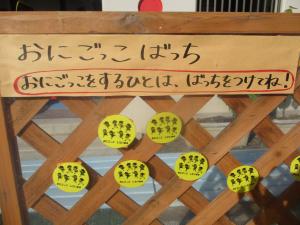 おにごっこ ばっち
おにごっこをするひとは、ばっちをつけてね！